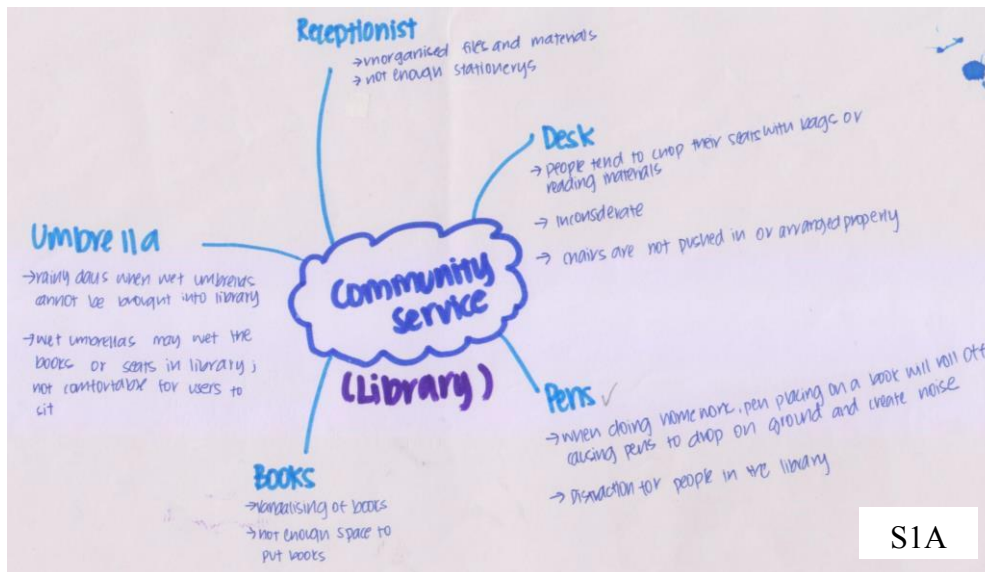 Receptionist
→ unorganised files and materials
→ not enough stationerys
Desk
→ people tend to chop their seats with bags or
reading materials
→ inconsiderate
→ chairs are not pushed in or arranged properly
Umbrella
→ rainy days when wet umbrellas
cannot be brought into library
→ wet umbrellas may wet the
books or seats in library;
not comfortable for users to
sit
Community
service
(Library)
Pens ✓
→ when doing homework, pen placing on a book will roll off
causing pens to drop on ground and create noise
→ Distraction for people in the library
Books
→ vandalising of books
→ not enough space to
put books
S1A